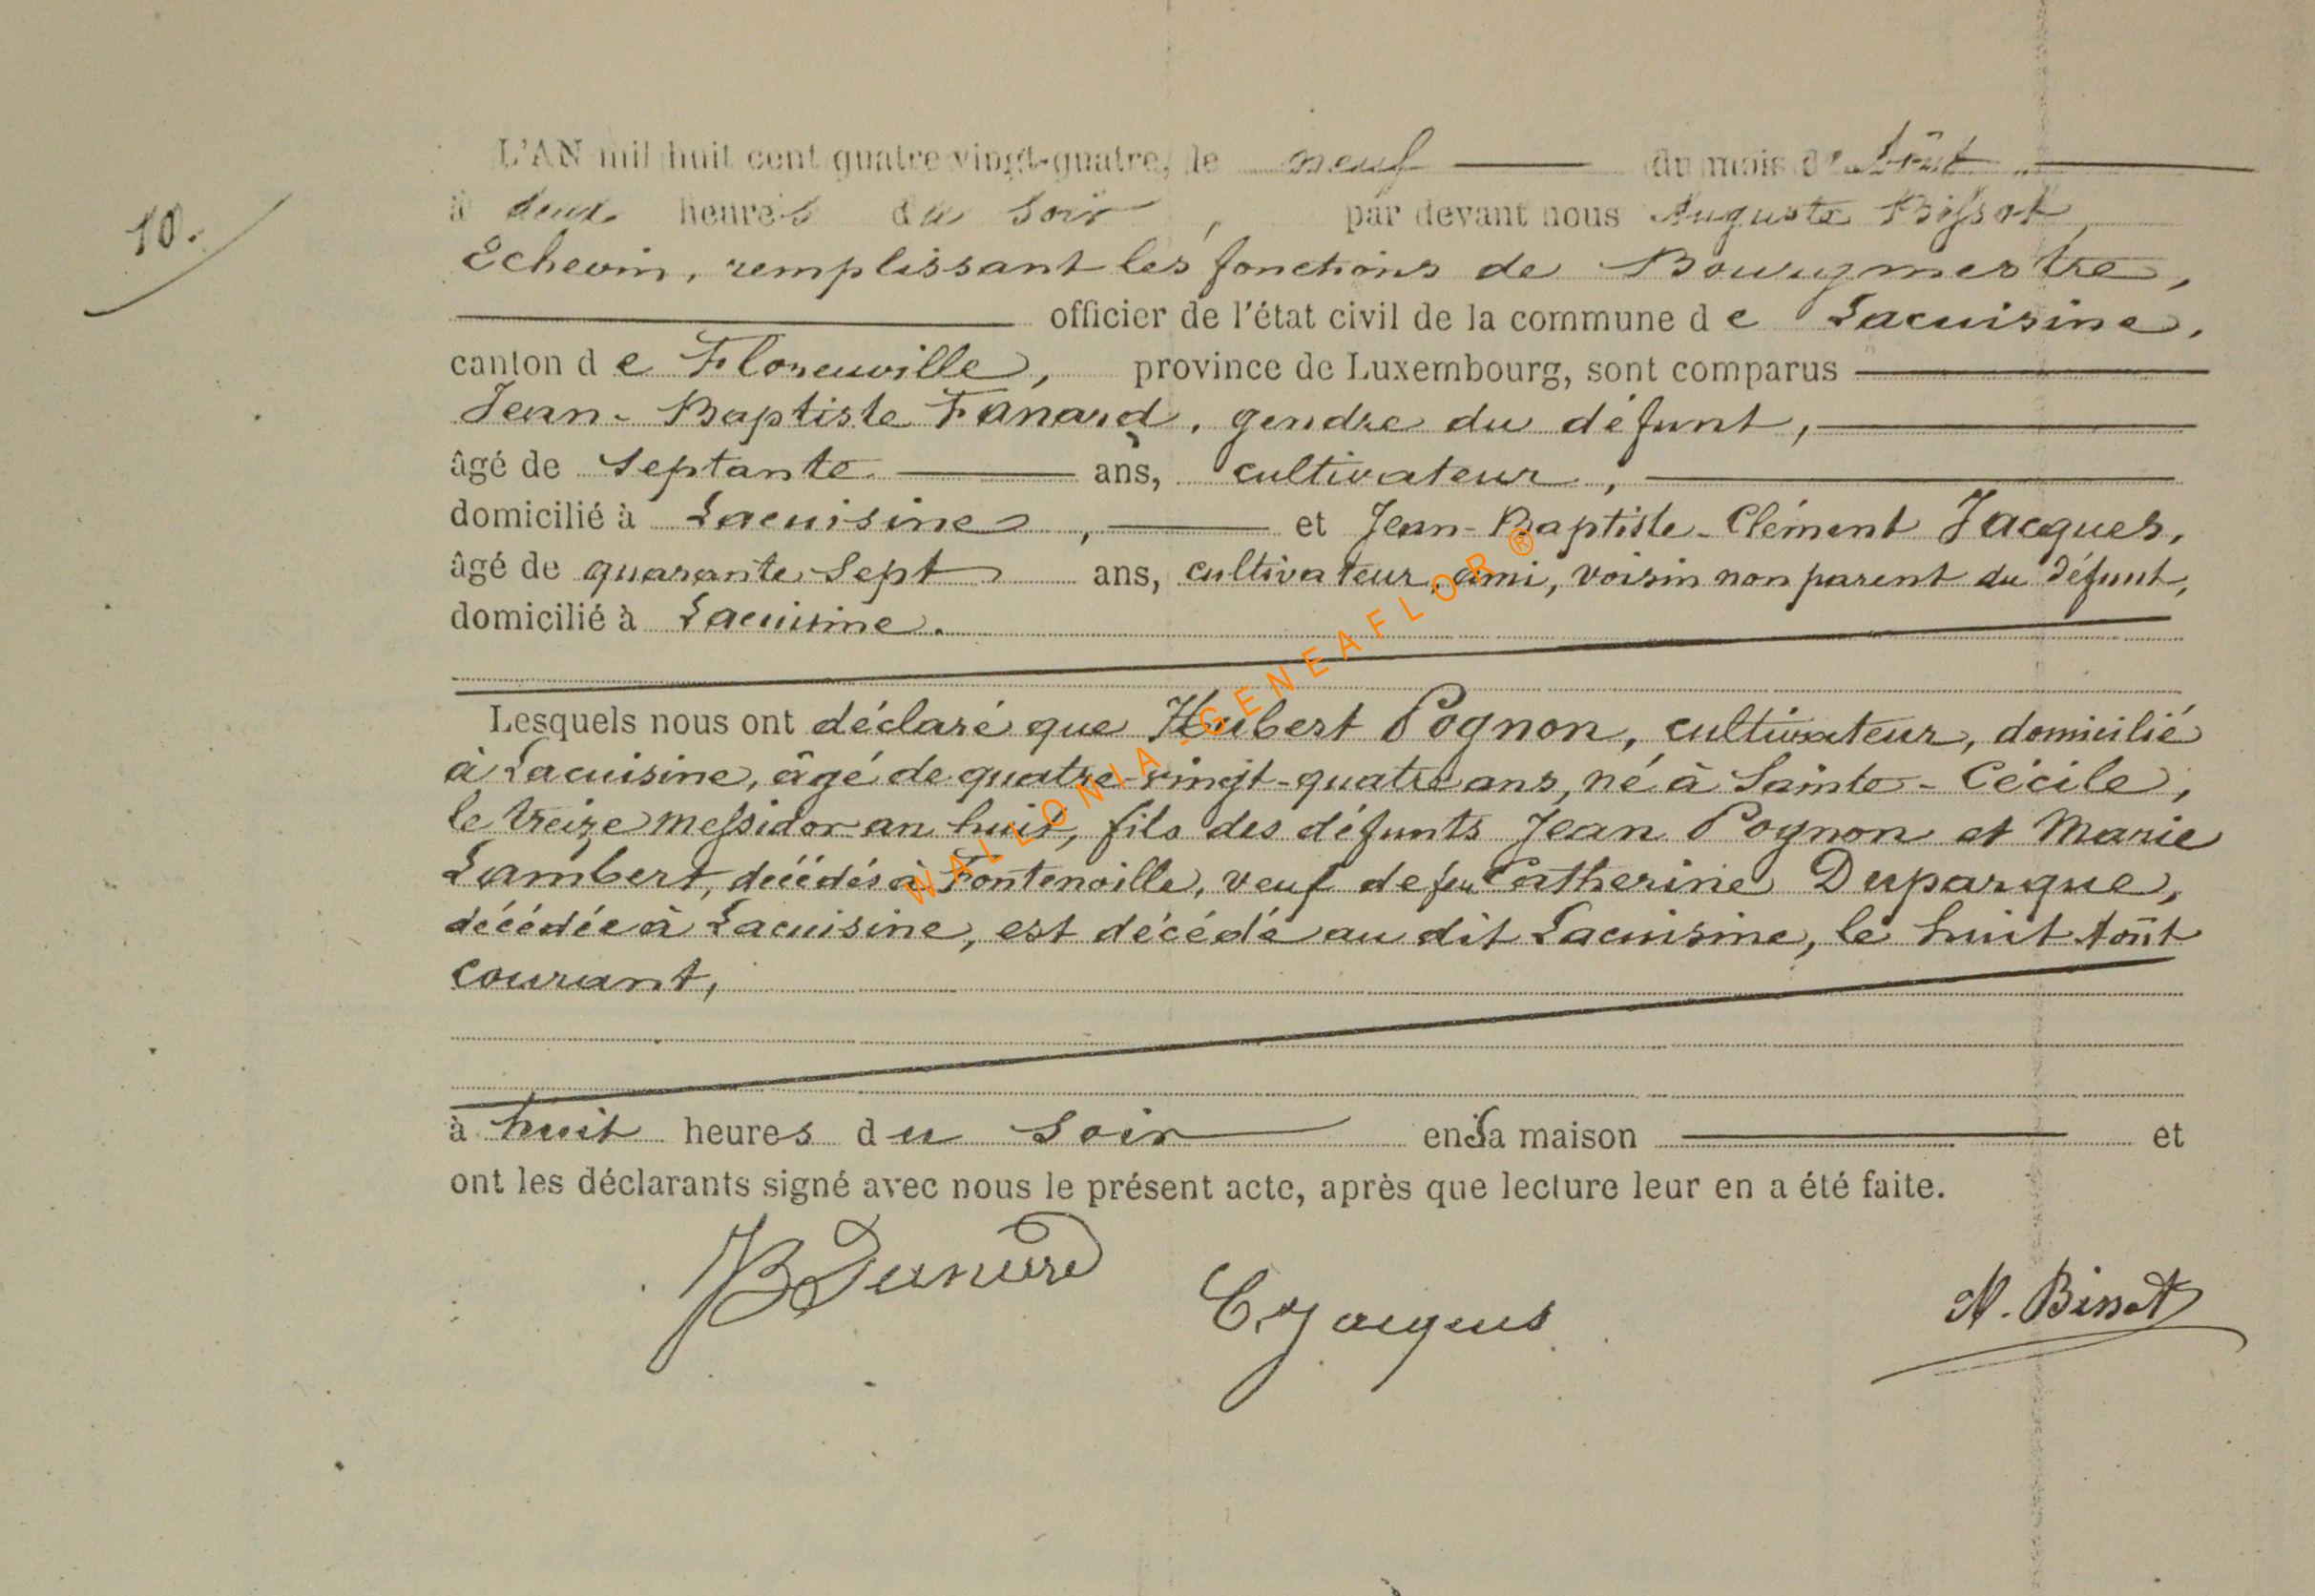 10.
L'AN mil huit cent quatre-vingt-quatre, le neuf du mois de Août
à deux heures du soir, par devant nous Auguste Bissot,
Echevin, remplissant les fonctions de Bourgmestre,
officier de l'état civil de la commune de Lacuisine,
canton de Florenville, province de Luxembourg, sont comparus
Jean-Baptiste Fanard, gendre du défunt,
âgé de septante ans, cultivateur,
domicilié à Lacuisine, et Jean-Baptiste-Clément Jacques,
âgé de quarante-sept ans, cultivateur, ami, voisin non parent du défunt,
domicilié à Lacuisine.
Lesquels nous ont déclaré que Hubert Pognon, cultivateur, domicilié
à Lacuisine, âgé de quatre-vingt-quatre ans, né à Sainte-Cécile,
le treize messidor an huit, fils des défunts Jean Pognon et Marie
Lambert, décédés à Fontenoille, veuf de feu Catherine Duparque,
décédée à Lacuisine, est décédé au dit Lacuisine, le huit Août
courant,
à huit heures du soir en sa maison et
ont les déclarants signé avec nous le présent acte, après que lecture leur en a été faite.
C. Jacques
WALLONIA-GENEAFLOR ®